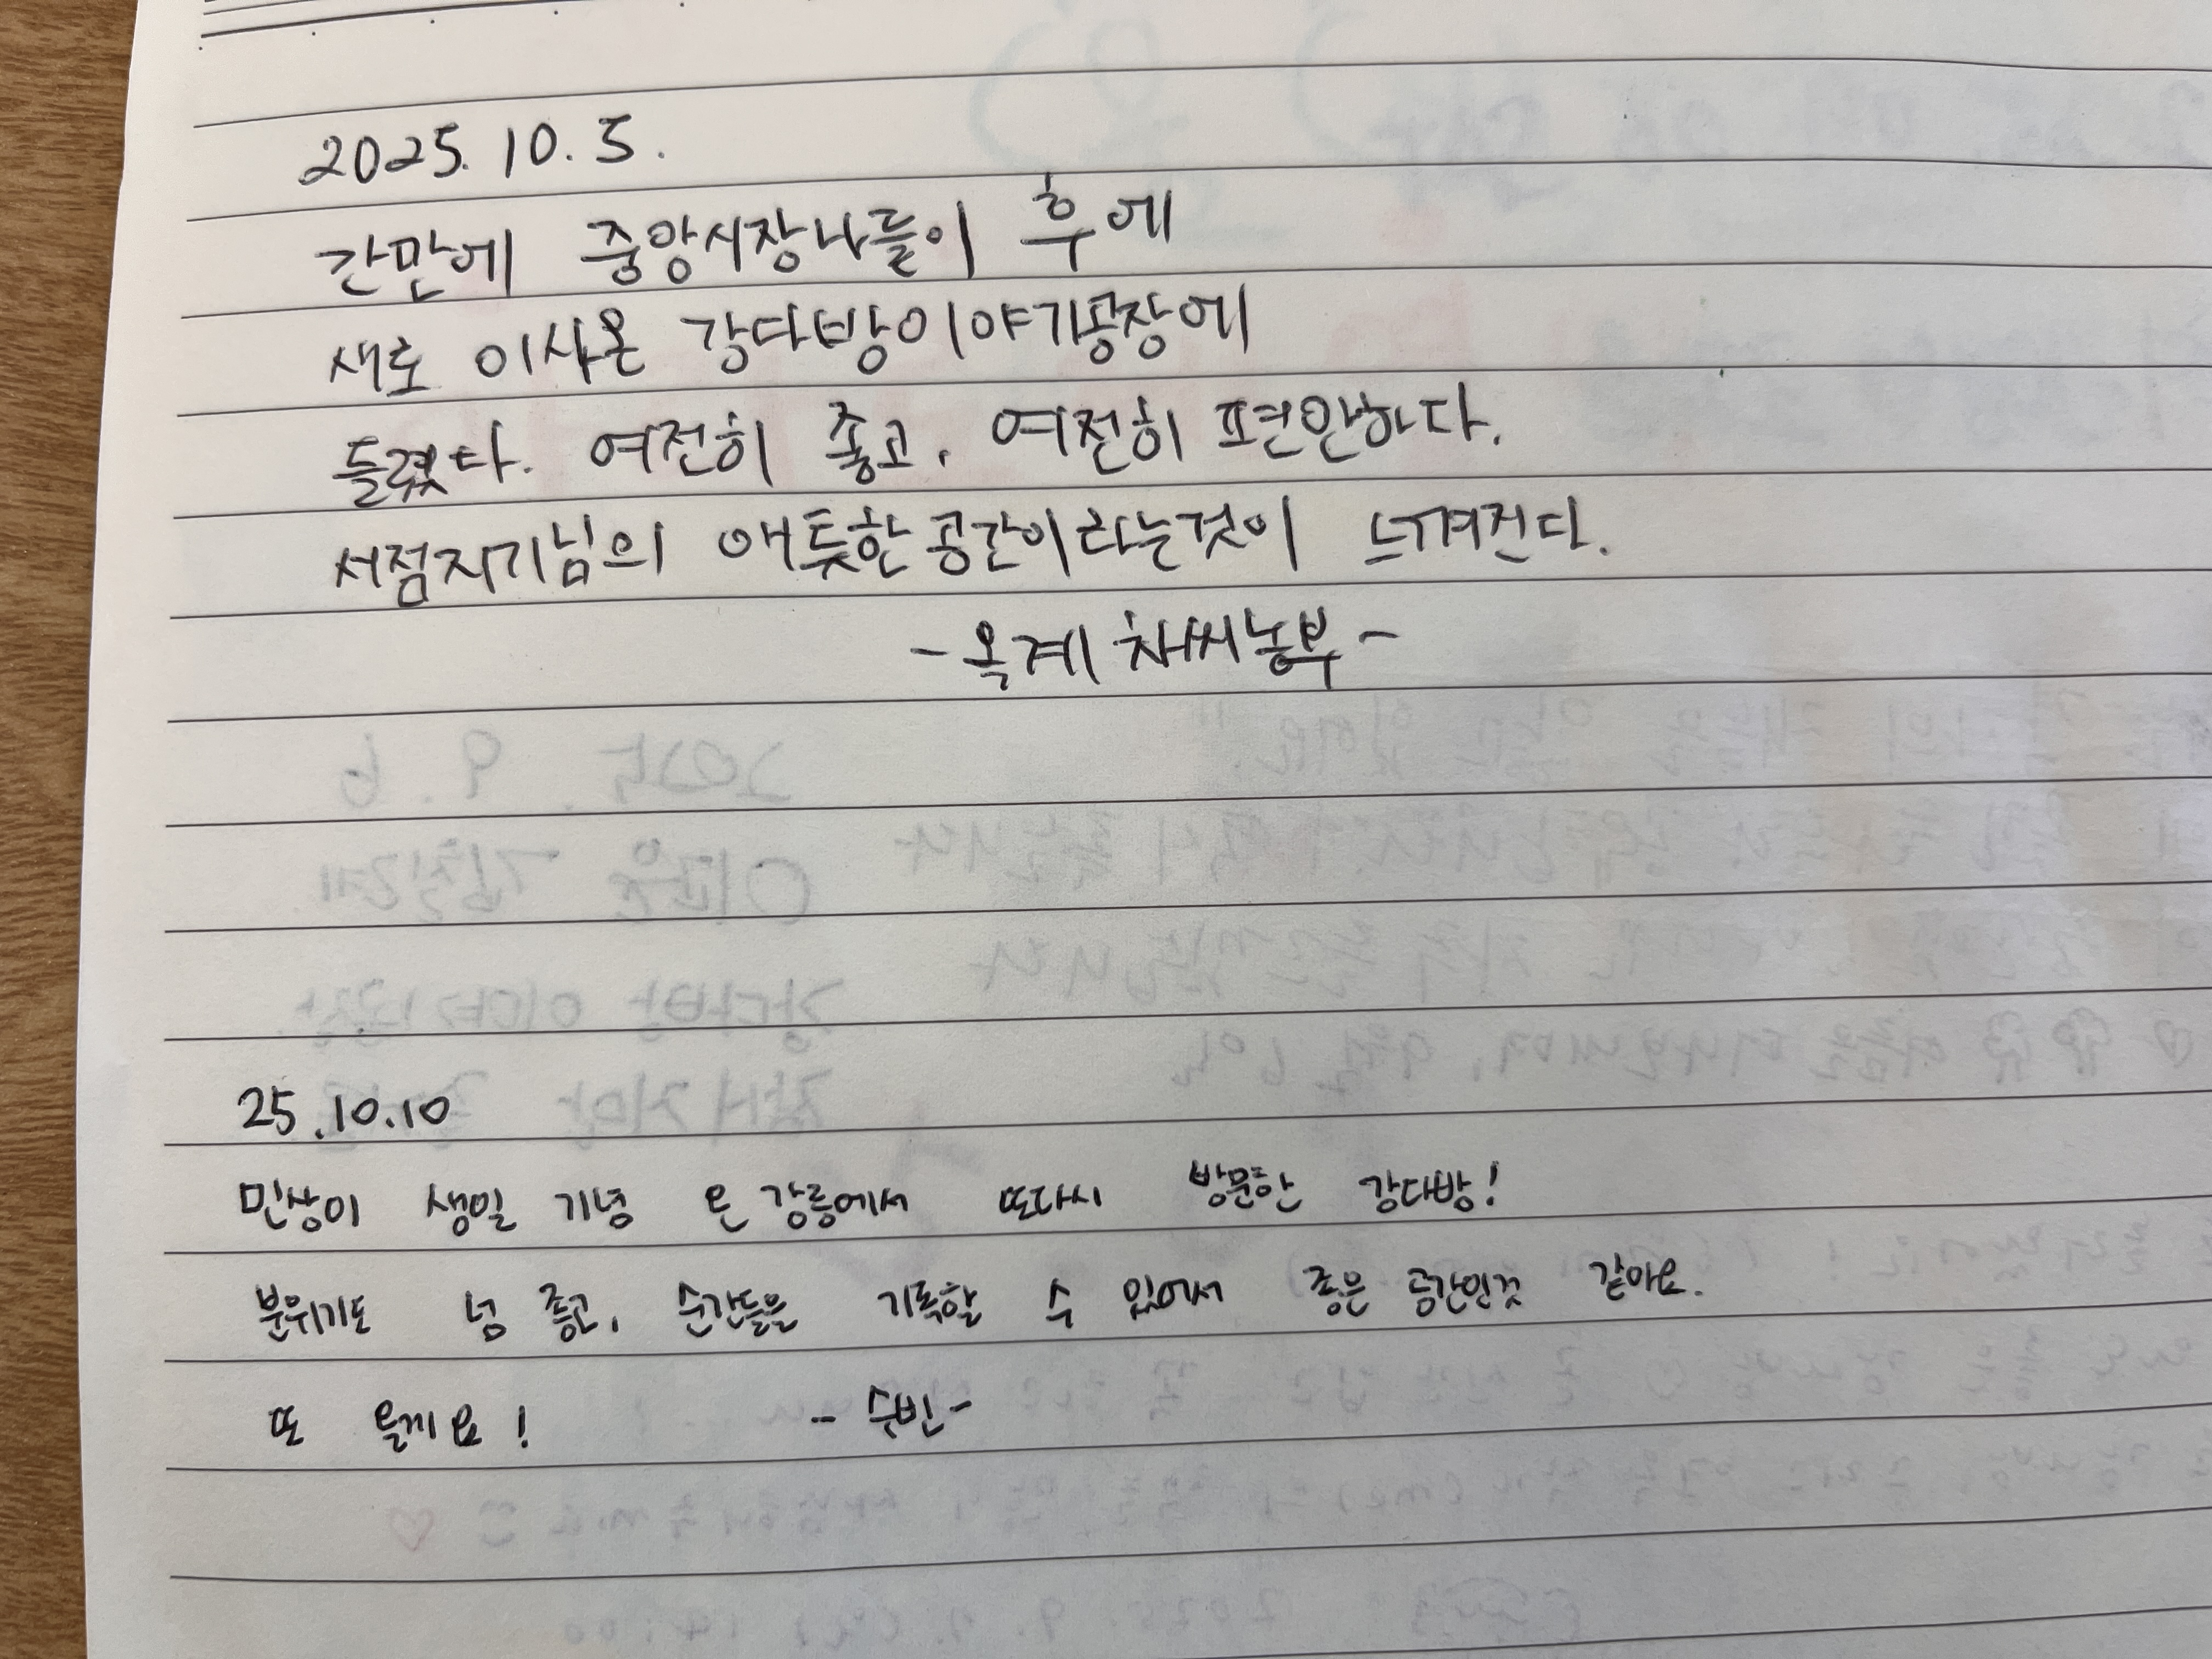 2025. 10. 5.
간만에 중앙시장나들이 후에
새로 이사온 강다방이야기공장에
들렸다. 여전히 좋고, 여전히 편안하다.
서점지기님의 애틋한 공간이라는것이 느껴진다.
-옥계 차씨농부-
25.10.10
민상이 생일 기념 온 강릉에서 또다시 방문한 강다방!
분위기도 넘 좋고, 순간들을 기록할 수 있어서 좋은 공간인것 같아요.
또 올게요! -수빈-